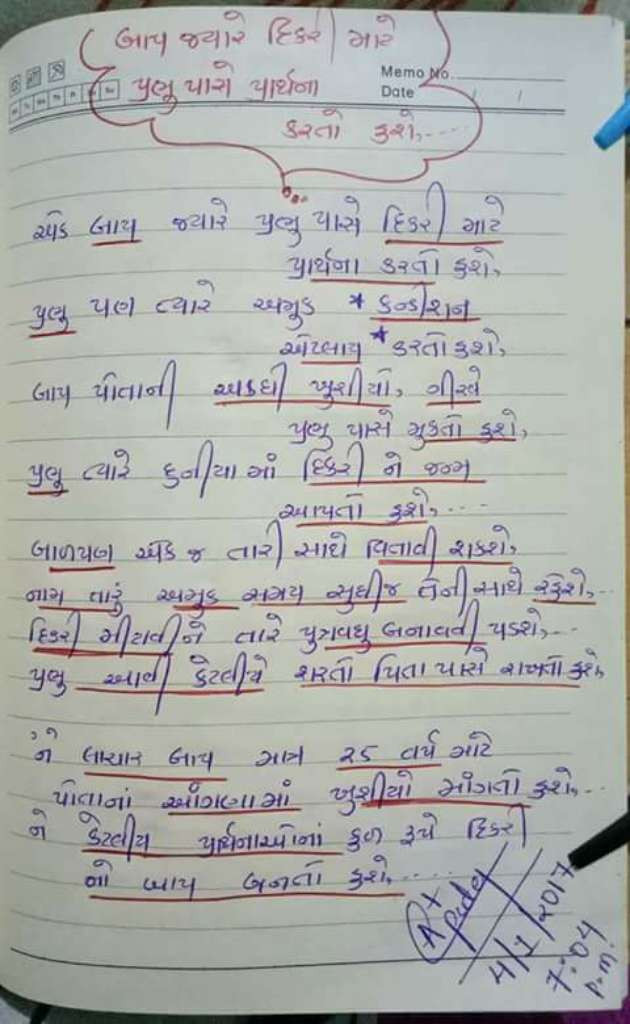 બાપ જ્યારે દિકરી માટે
પ્રભુ પાસે પ્રાર્થના
Memo No.
Date / /
કરતો હશે,....
એક બાપ જ્યારે પ્રભુ પાસે દિકરી માટે
પ્રાર્થના કરતો હશે,
પ્રભુ પણ ત્યારે અમુક * કન્ડીશન
એપ્લાય * કરતો હશે,
બાપ પોતાની અડધી ખુશીયો, ગીરવે
પ્રભુ પાસે મુકતો હશે,
પ્રભુ ત્યારે દુનીયા માં દિકરી ને જન્મ
આપતો હશે,...
બાળપણ એક જ તારી સાથે વિતાવી શકશે,
નામ તારું અમુક સમય સુધીજ તેની સાથે રહેશે,...
દિકરી મીટાવીને તારે પુત્રવધુ બનાવવી પડશે,...
પ્રભુ આવી કેટલીયે શરતો પિતા પાસે રાખતો હશે,
ને લાચાર બાપ માત્ર ૨૫ વર્ષ માટે
પોતાનાં આંગણામાં ખુશીયો માંગતો હશે,...
ને કેટલીય પ્રાર્થનાઓનાં ફળ રૂપે દિકરી
નો બાપ બનતો હશે,....
Patel
4/1/2017
7:04
p.m.